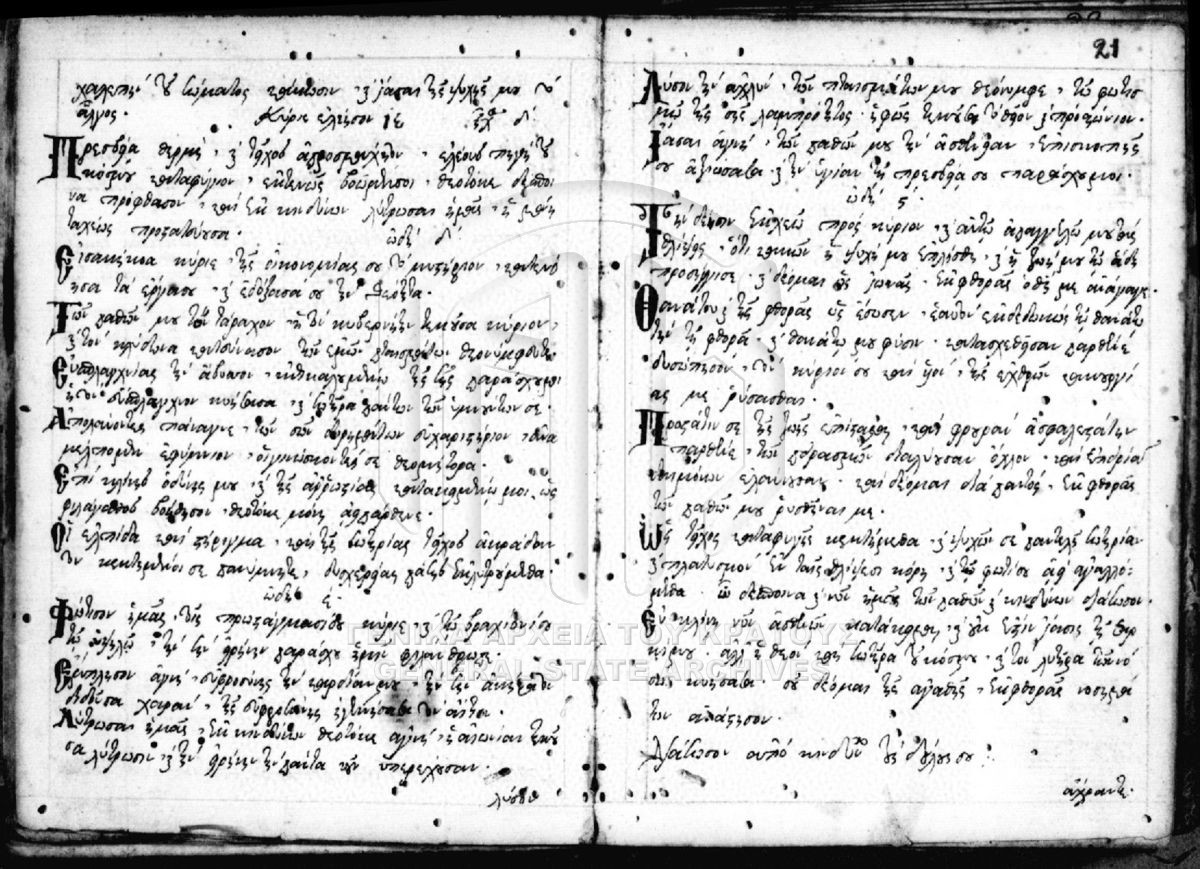 χαλεπὴν τοῦ σώματος κάκωσιν · καὶ ἴασαι τῆς ψυχῆς μου τὸ
ἄλγος ·
Κύριε ἐλέησον ιε
Πρεσβεία θερμὴ · καὶ τεῖχος ἀπροσμάχητον · ἐλέους πηγὴ τοῦ
κόσμου καταφύγιον · ἐκτενῶς βοῶμέν σοι · θεοτόκε δέσποι
να πρόφθασον · καὶ ἐκ κινδύνων λύτρωσαι ἡμᾶς · ἡ μόνη
ταχέως προστατεύουσα ·
ὠδὴ δ΄
Εἰσακήκοα κύριε · τῆς οἰκονομίας σου τὸ μυστήριον · κατενό
ησα τὰ ἔργα σου · καὶ ἐδόξασά σου τὴν θεότητα ·
Τῶν παθῶν μου τὸν τάραχον · ἡ τὸν κυβερνήτην τεκοῦσα κύριον ·
καὶ τὸν κλύδωνα κατεύνασον · τῶν ἐμῶν πταισμάτων θεονύμφευτε ·
Εὐσπλαγχνίας τὴν ἄβυσσον · ἐπικαλουμένῳ τῆς σῆς παράσχου μοι
ἡ τὸν εὔσπλαγχνον κυήσασα · καὶ σωτῆρα πάντων τῶν ὑμνούντων σε ·
Ἀπολαύοντες πάναγνε · τῶν σῶν δωρημάτων εὐχαριστήριον · ἀνα
μέλπομεν ἐφύμνιον · οἱ γινώσκοντές σε θεομήτορα ·
Ἐπὶ κλίνης ὀδύνης μου · καὶ τῆς ἀρρωστίας κατακειμένῳ μοι · ὡς
φιλάγαθος βοήθησον · θεοτόκε μόνη ἀειπάρθενε ·
Οἱ ἐλπίδα καὶ στήριγμα · καὶ τῆς σωτηρίας τεῖχος ἀκράδαν
τον κεκτημένοι σε πανύμνητε · δυσχερείας πάσης ἐκλυτρούμεθα ·
ὠδὴ ε΄
Φώτισον ἡμᾶς · τοῖς προστάγμασί σου κύριε · καὶ τῷ βραχίονί σου
τῷ ὑψηλῷ · τὴν σὴν εἰρήνην παράσχου ἡμῖν φιλάνθρωπε ·
Ἔμπλησον ἁγνὴ · εὐφροσύνης τὴν καρδίαν μου · τὴν σὴν ἀκήρατον
διδοῦσα χαράν · τῆς εὐφροσύνης ἡ γεννήσασα τὸν αἴτιον ·
Λύτρωσαι ἡμᾶς · ἐκ κινδύνων θεοτόκε ἁγνὴ · ἡ αἰωνίαν τεκοῦ
σα λύτρωσιν · καὶ τὴν εἰρήνην τὴν πάντα νοῦν ὑπερέχουσαν ·
21
Λύσον τὴν ἀχλὺν · τῶν πταισμάτων μου θεόνυμφε · τῷ φωτισ
μῷ τῆς σῆς λαμπρότητος · ἡ φῶς τεκοῦσα τὸ θεῖον καὶ προαιώνιον ·
Ἴασαι ἁγνὴ · τῶν παθῶν μου τὴν ἀσθένειαν · ἐπισκοπῆς
σου ἀξιώσασα · καὶ τὴν ὑγείαν τῇ πρεσβείᾳ σου παράσχου μοι ·
ὠδὴ ς΄
Τὴν δέησιν ἐκχεῶ πρὸς κύριον · καὶ αὐτῷ ἀπαγγελῶ μου τὰς
θλίψεις · ὅτι κακῶν ἡ ψυχή μου ἐπλήσθη · καὶ ἡ ζωή μου τῷ ᾅδῃ
προσήγγισε · καὶ δέομαι ὡς Ἰωνᾶς · ἐκ φθορᾶς ὁ θεός με ἀνάγαγε ·
Θανάτου καὶ τῆς φθορᾶς ὡς ἔσωσεν · ἑαυτὸν ἐκδεδωκὼς τῷ θανάτῳ
τὴν τῇ φθορᾷ · καὶ θανάτῳ μου φύσιν · κατασχεθεῖσαν παρθένε
δυσώπησον · τὸν κύριόν σου καὶ υἱόν · τῆς ἐχθρῶν κακουργί
ας με ῥύσασθαι ·
Προστάτιν σε τῆς ζωῆς ἐπίσταμαι · καὶ φρουρὰν ἀσφαλεστάτην
παρθένε · τῶν πειρασμῶν διαλύουσαν ὄχλον · καὶ ἐπηρείας
δαιμόνων ἐλαύνουσαν · καὶ δέομαι διαπαντός · ἐκ φθορᾶς
τῶν παθῶν μου ῥυσθῆναί με ·
Ὡς τεῖχος καταφυγῆς κεκτήμεθα · καὶ ψυχῶν σε παντελῆ σωτηρίαν
καὶ πλατυσμὸν ἐν ταῖς θλίψεσι κόρη · καὶ τῷ φωτί σου ἀεὶ ἀγαλλό-
μεθα · ὦ δέσποινα καὶ νῦν ἡμᾶς τῶν παθῶν καὶ κινδύνων διάσωσον ·
Ἐν κλίνῃ νῦν ἀσθενῶν κατάκειμαι · καὶ οὐκ ἔστιν ἴασις τῇ σαρ
κί μου · ἀλλ᾽ ἡ θεὸν καὶ σωτῆρα τοῦ κόσμου · καὶ τὸν λυτῆρα τῶν νό
σων κυήσασα · σοῦ δέομαι τῆς ἀγαθῆς · ἐκ φθορᾶς νοσημά
των ἀνάστησον ·
Διάσωσον ἀπὸ κινδύνων τοὺς δούλους σου
ἄχραντε ·
ΓΕΝΙΚΑ ΑΡΧΕΙΑ ΤΟΥ ΚΡΑΤΟΥΣ
GENERAL STATE ARCHIVES